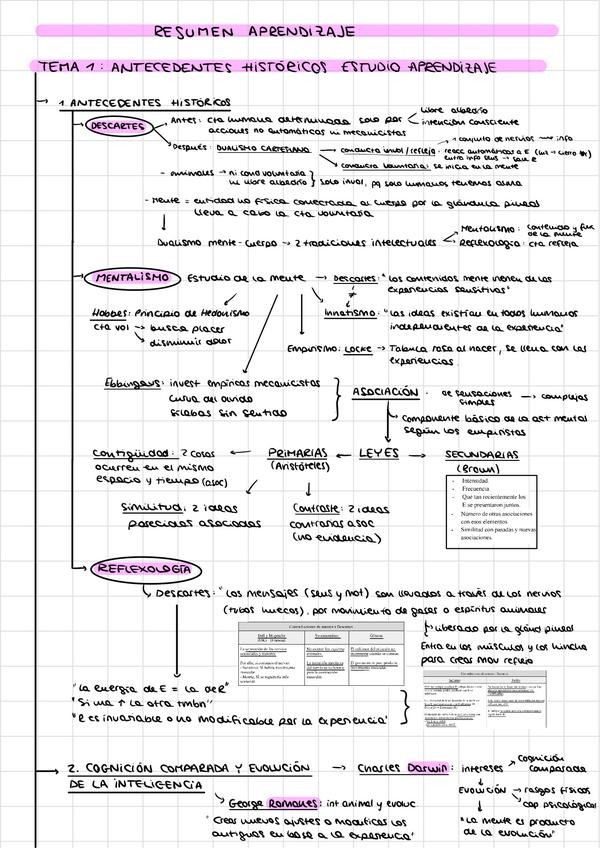 RESUMEN APRENDIZAJE
TEMA 1: ANTECEDENTES HISTÓRICOS ESTUDIO APRENDIZAJE
1. ANTECEDENTES HISTÓRICOS
DESCARTES
Antes: cta humana determinada solo por
libre albedrío
intención consciente
acciones no automáticas ni mecanicistas
Después: DUALISMO CARTESIANO
conducta invol/refleja: reacc automáticas a E
conjunto de nervios → info
entra info sens → sale R
conducta voluntaria: se inicia en la mente
- animales → ni cond voluntaria
ni libre albedrío
solo invol, pq solo humanos tenemos alma
- Mente = entidad no física conectada al cuerpo por la glándula pineal
lleva a cabo la cta voluntaria
Dualismo mente-cuerpo → 2 tradiciones intelectuales
Mentalismo: contenido y func
de la mente
Reflexología: cta refleja
MENTALISMO
Estudio de la mente → Descartes: "los contenidos mente vienen de las
experiencias sensitivas"
≠
Hobbes: Principio de Hedonismo
cta vol → busca placer
disminuir dolor
Innatismo: "las ideas existían en todos humanos
independientes de la experiencia"
Empirismo: LOCKE → Tabula rasa al nacer, se llena con las
experiencias
Ebbingaus: invest empíricas mecanicistas
curva del olvido
sílabas sin sentido
ASOCIACIÓN: de sensaciones
simples
→ complejas
Componente básico de la act mental
según los empiristas
Contigüidad: 2 cosas
ocurren en el mismo
espacio y tiempo (asoc)
PRIMARIAS
(Aristóteles)
LEYES
SECUNDARIAS
(Brown)
- Intensidad
- Frecuencia
- Que tan recientemente los
E se presentaron juntos.
- Número de otras asociaciones
con esos elementos.
- Similitud con pasadas y nuevas
asociaciones.
Similitud: 2 ideas
parecidas asociadas
Contraste: 2 ideas
contrarias asoc
(no evidencia)
REFLEXOLOGÍA
Descartes: "los mensajes (sens y mot) son llevados a través de los nervios
(tubos huecos), por movimiento de gases o espíritus animales
liberado por la gland pineal
Entra en los músculos y los hincha
para crear mov reflejo
"la energía de E = la de R"
"Si una ↑ la otra tmbn"
"R es invariable o no modificable por la experiencia"
2. COGNICIÓN COMPARADA Y EVOLUCIÓN
DE LA INTELIGENCIA
→ Charles Darwin: intereses
Cognición
comparada
Evolución → rasgos físicos
cap psicológicas
"La mente es producto
de la evolución"
George Romanes: int animal y evoluc
"Crear nuevos ajustes o modificar los
antiguos en base a la experiencia"